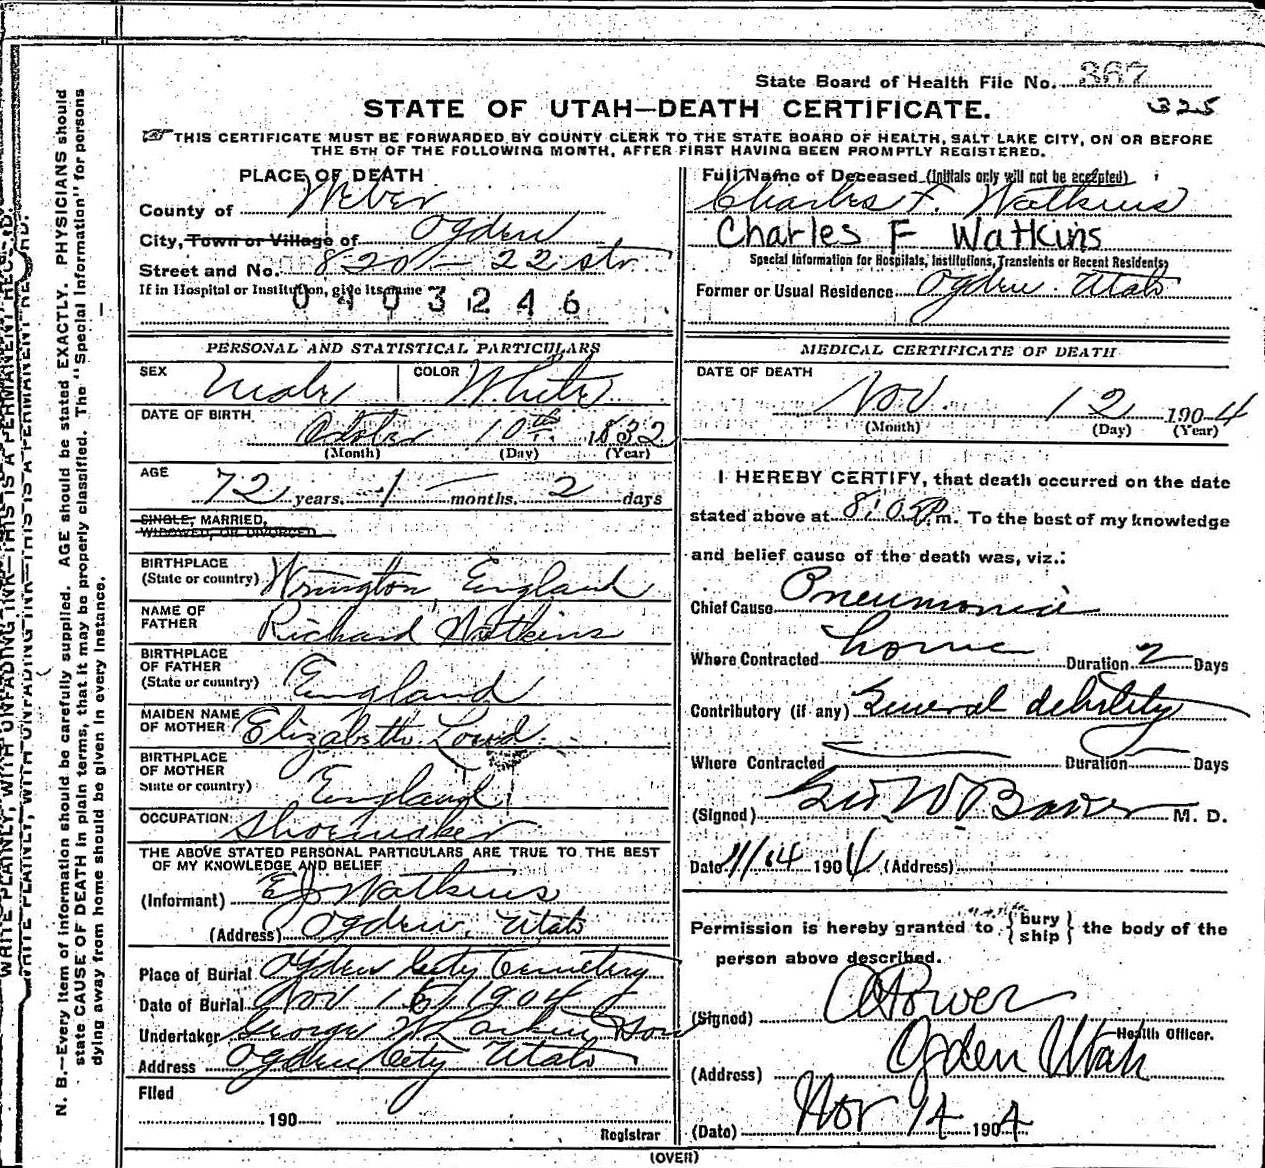 State Board of Health File No. 367
325
STATE OF UTAH—DEATH CERTIFICATE.
THIS CERTIFICATE MUST BE FORWARDED BY COUNTY CLERK TO THE STATE BOARD OF HEALTH, SALT LAKE CITY, ON OR BEFORE
THE 5TH OF THE FOLLOWING MONTH, AFTER FIRST HAVING BEEN PROMPTLY REGISTERED.
PLACE OF DEATH
County of Weber
City, Town or Village of Ogden
Street and No. 820 - 22 str
If in Hospital or Institution, give its name
0403246
Full Name of Deceased (Initials only will not be accepted)
Charles F. Watkins
Charles F Watkins
Special Information for Hospitals, Institutions, Transients or Recent Residents
Former or Usual Residence Ogden Utah
PERSONAL AND STATISTICAL PARTICULARS
SEX Male COLOR White
DATE OF BIRTH
October 10th 1832
(Month) (Day) (Year)
AGE 72 years 1 months 2 days
SINGLE, MARRIED,
WIDOWED, OR DIVORCED
BIRTHPLACE
(State or country) Wrington, England
NAME OF
FATHER Richard Watkins
BIRTHPLACE
OF FATHER
(State or country) England
MAIDEN NAME
OF MOTHER Elizabeth
BIRTHPLACE
OF MOTHER
State or country) England
OCCUPATION Shoemaker
THE ABOVE STATED PERSONAL PARTICULARS ARE TRUE TO THE BEST
OF MY KNOWLEDGE AND BELIEF
(Informant) E J Watkins
(Address) Ogden, Utah
Place of Burial Ogden City Cemetery
Date of Burial Nov 15 1904
Undertaker George W Larkin & Sons
Address Ogden City Utah
Filed
190
Registrar
MEDICAL CERTIFICATE OF DEATH
DATE OF DEATH
Nov. 12 1904
(Month) (Day) (Year)
I HEREBY CERTIFY, that death occurred on the date
stated above at 8:05 P.m. To the best of my knowledge
and belief cause of the death was, viz.:
Chief Cause Pneumonia
Where Contracted home Duration 2 Days
Contributory (if any) General debility
Where Contracted Duration Days
(Signed) Geo W Baker M. D.
Date 11/14 1904 (Address)
Permission is hereby granted to {bury
ship} the body of the
person above described.
(Signed)
Health Officer.
(Address) Ogden Utah
(Date) Nov 14 1904
(OVER)
N. B.—Every item of information should be carefully supplied. AGE should be stated EXACTLY. PHYSICIANS should
state CAUSE OF DEATH in plain terms, that it may be properly classified. The "Special Information" for persons
dying away from home should be given in every instance.
WRITE PLAINLY, WITH UNFADING INK—THIS IS A PERMANENT RECORD.
WRITE PLAINLY, WITH UNFADING INK—THIS IS A PERMANENT RECORD.